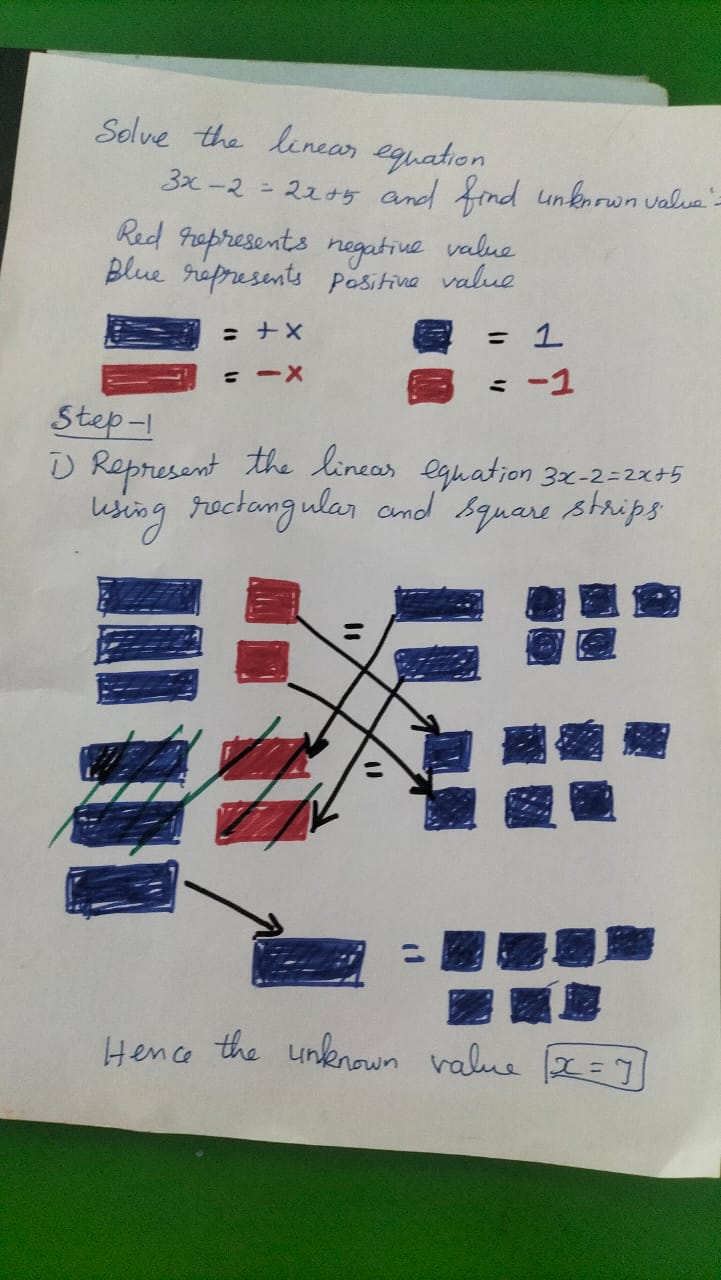 Solve the linear equation
3x - 2 = 2x + 5 and find unknown value
Red represents negative value
Blue represents positive value
= + x = 1
= - x = -1
Step-1
i) Represent the linear equation 3x-2=2x+5
using rectangular and square strips.
=
=
=
Hence the unknown value x = 7